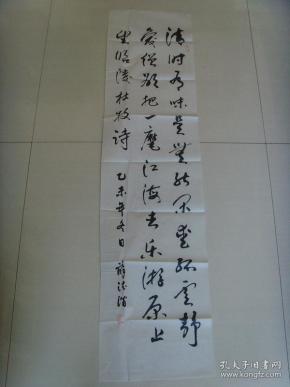 清时有味是无能闲爱孤云静
爱僧欲把一麾江海去乐游原上
望昭陵 杜牧诗 乙未年冬日
孔夫子旧书网